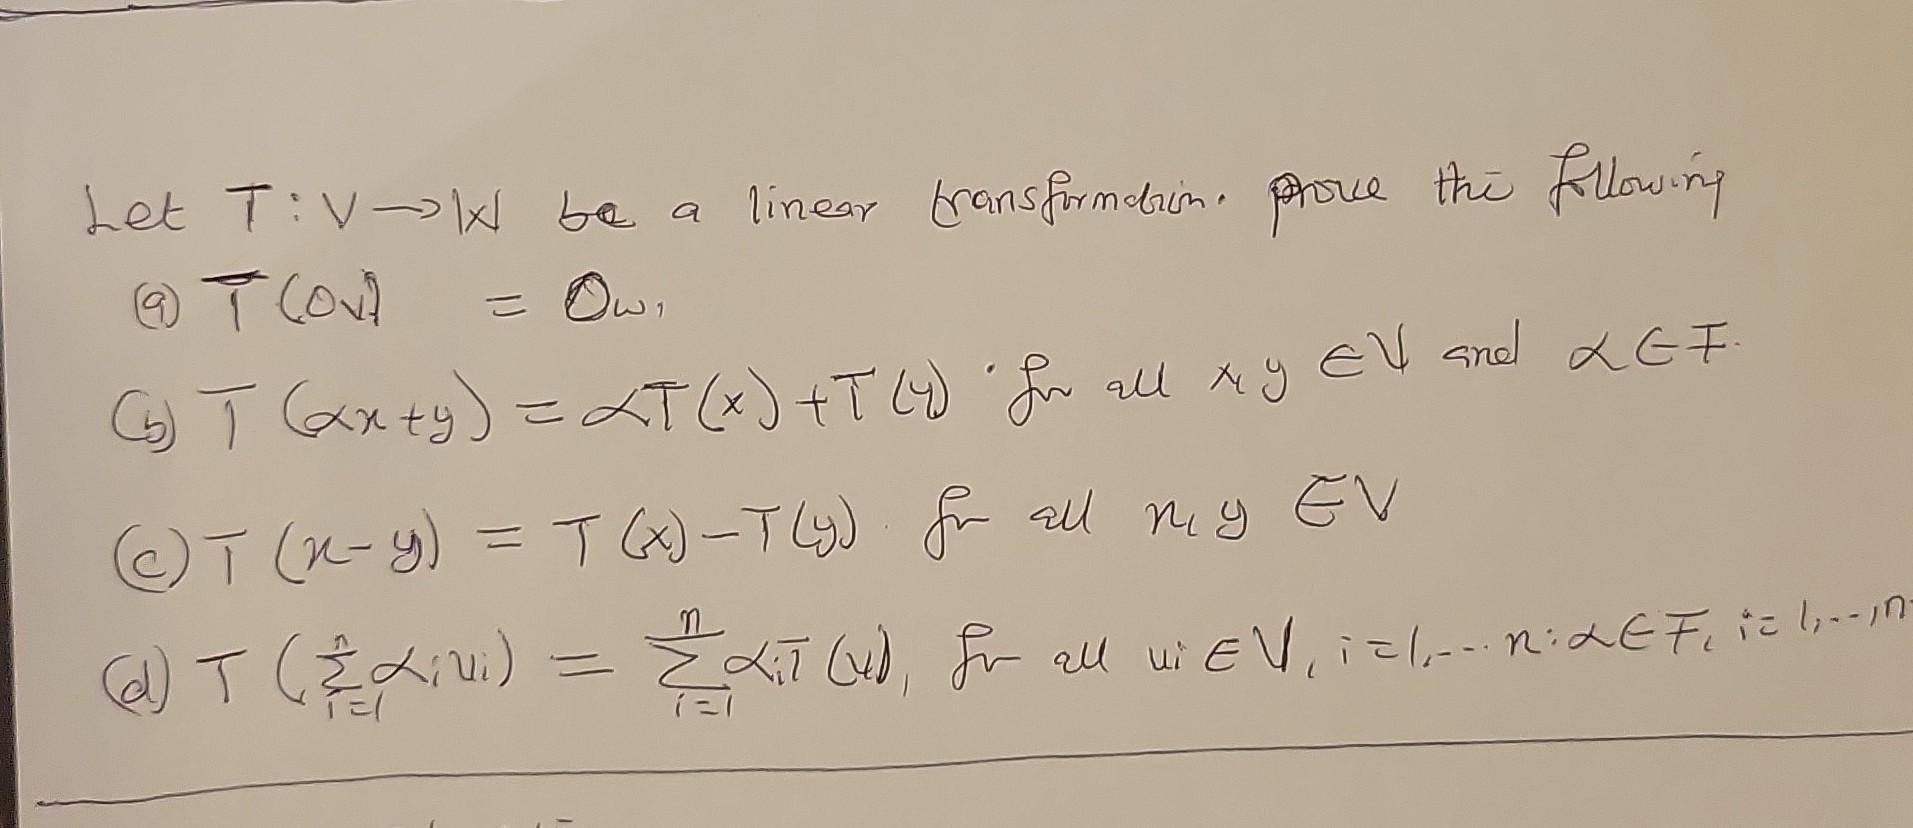 Let T: V → W be a linear transformation. prove the following
(a) T(0v) = 0w,
(b) T(αx+y) = αT(x)+T(y) for all x, y ∈ V and α ∈ F.
(c) T(x-y) = T(x)-T(y). for all x, y ∈ V
(d) T(∑_{i=1}^{n} αi vi) = ∑_{i=1}^{n} αi T(vi), for all vi ∈ V, i=1,...n: α ∈ F, i=1,...,n.